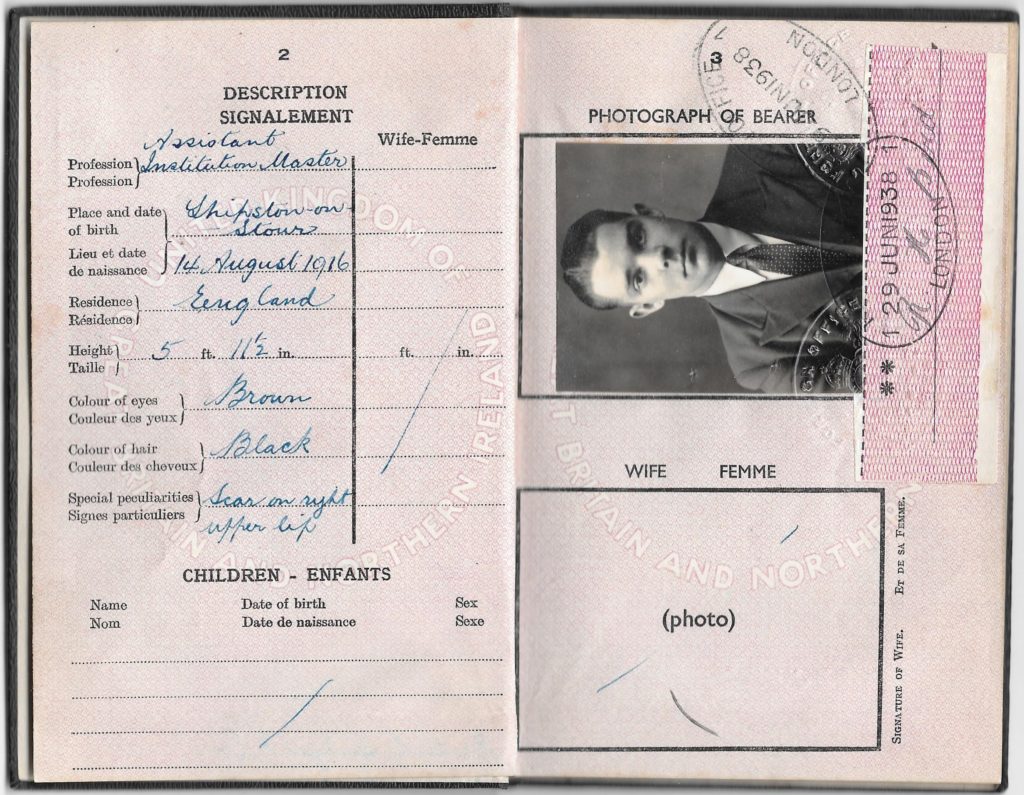 2
DESCRIPTION
SIGNALEMENT
Wife-Femme
Profession
Profession
Assistant
Institution Master
Place and date
of birth
Lieu et date
de naissance
Shipston-on-
Stour
14 August 1916
Residence
Résidence
England
Height
Taille
5 ft. 11½ in.
ft. in.
Colour of eyes
Couleur des yeux
Brown
Colour of hair
Couleur des cheveux
Black
Special peculiarities
Signes particuliers
Scar on right
upper lip
CHILDREN - ENFANTS
Name Date of birth Sex
Nom Date de naissance Sexe
UNITED KINGDOM OF
GREAT BRITAIN AND NORTHERN IRELAND
3
PHOTOGRAPH OF BEARER
OFFICE
JUN1938
LONDON
** 1 29 JUN1938 1
LONDON
OFFICE
WIFE FEMME
(photo)
BRITAIN AND NORTHERN
SIGNATURE OF WIFE. ET DE SA FEMME.